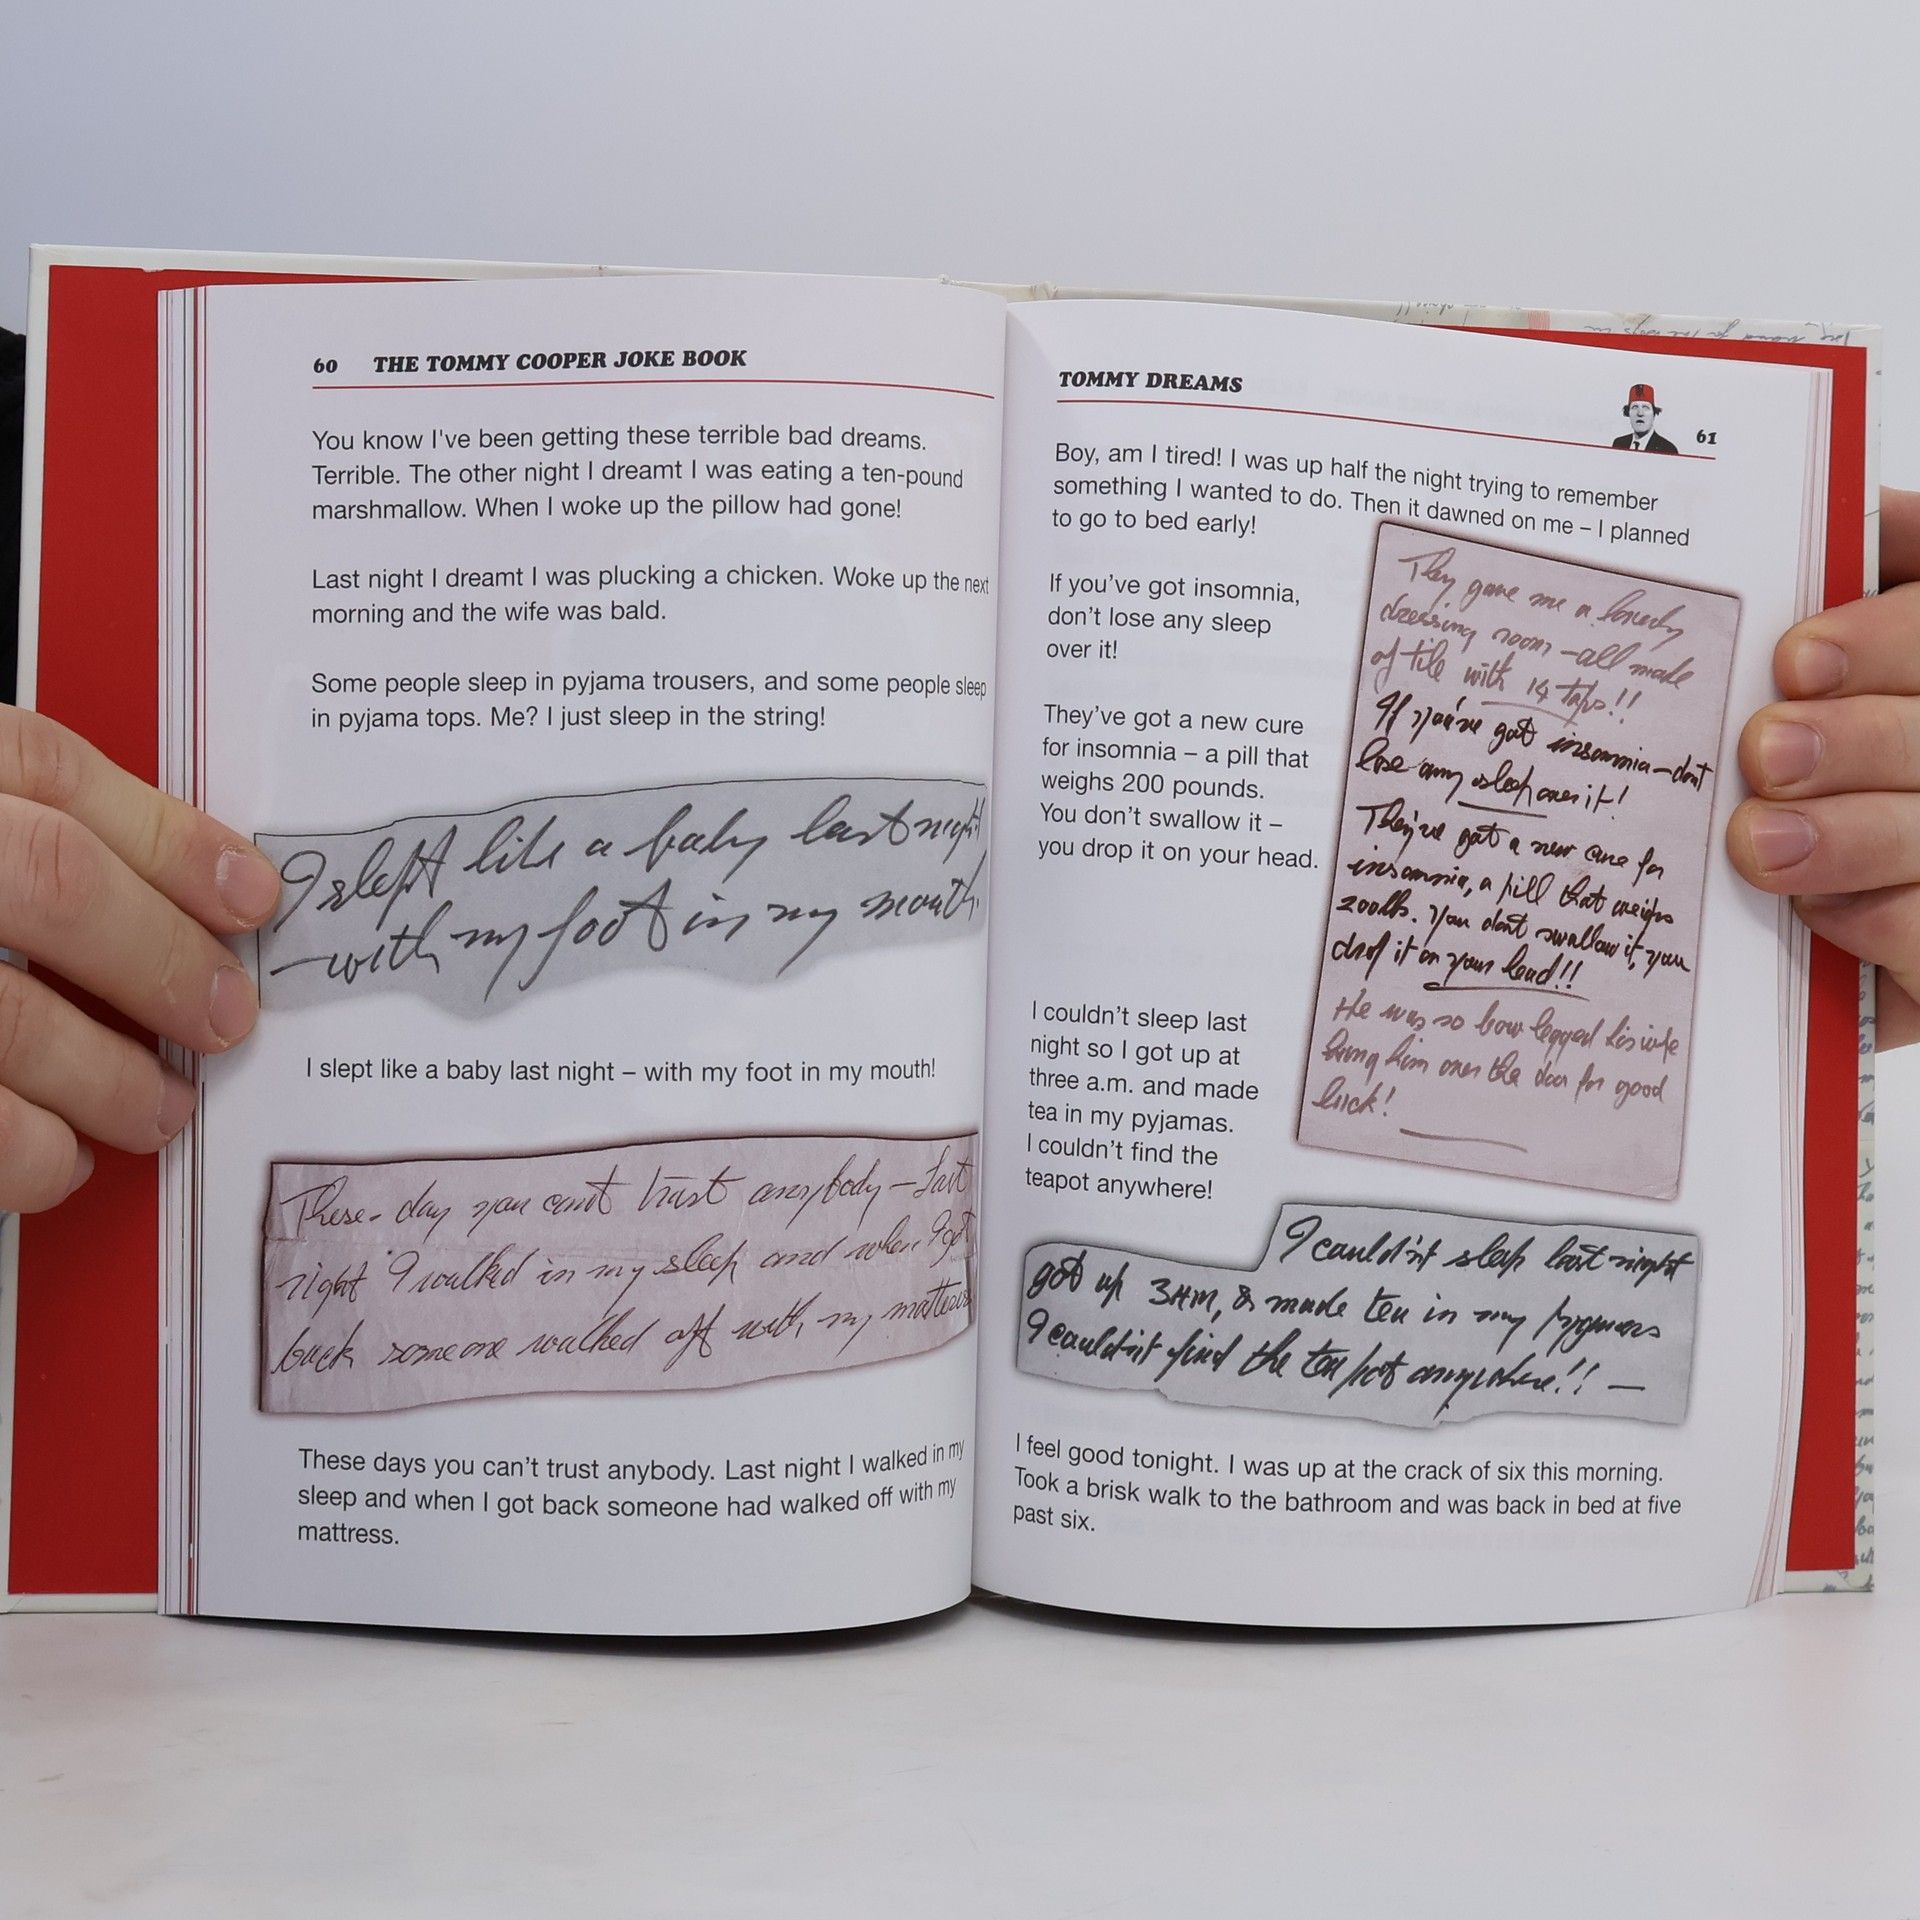 60 THE TOMMY COOPER JOKE BOOK
You know I've been getting these terrible bad dreams.
Terrible. The other night I dreamt I was eating a ten-pound
marshmallow. When I woke up the pillow had gone!
Last night I dreamt I was plucking a chicken. Woke up the next
morning and the wife was bald.
Some people sleep in pyjama trousers, and some people sleep
in pyjama tops. Me? I just sleep in the string!
I slept like a baby last night
– with my foot in my mouth.
I slept like a baby last night – with my foot in my mouth!
These – day you cant trust anybody – Last
night I walked in my sleep and when I got
back someone walked off with my mattress
These days you can't trust anybody. Last night I walked in my
sleep and when I got back someone had walked off with my
mattress.
TOMMY DREAMS
61
Boy, am I tired! I was up half the night trying to remember
something I wanted to do. Then it dawned on me – I planned
to go to bed early!
If you've got insomnia,
don't lose any sleep
over it!
They've got a new cure
for insomnia – a pill that
weighs 200 pounds.
You don't swallow it –
you drop it on your head.
They gave me a lovely
dressing room – all made
of tile with 14 taps!!
If you've got insomnia – dont
lose any sleep over it!
They've got a new cure for
insomnia, a pill that weighs
200lb. You dont swallow it, you
drop it on your head!!
He was so bow legged his wife
hung him over the door for good
luck!
I couldn't sleep last
night so I got up at
three a.m. and made
tea in my pyjamas.
I couldn't find the
teapot anywhere!
I couldn't sleep last night
got up 3AM, & made tea in my
I couldn't find the tea pot anywhere!! –
I feel good tonight. I was up at the crack of six this morning.
Took a brisk walk to the bathroom and was back in bed at five
past six.